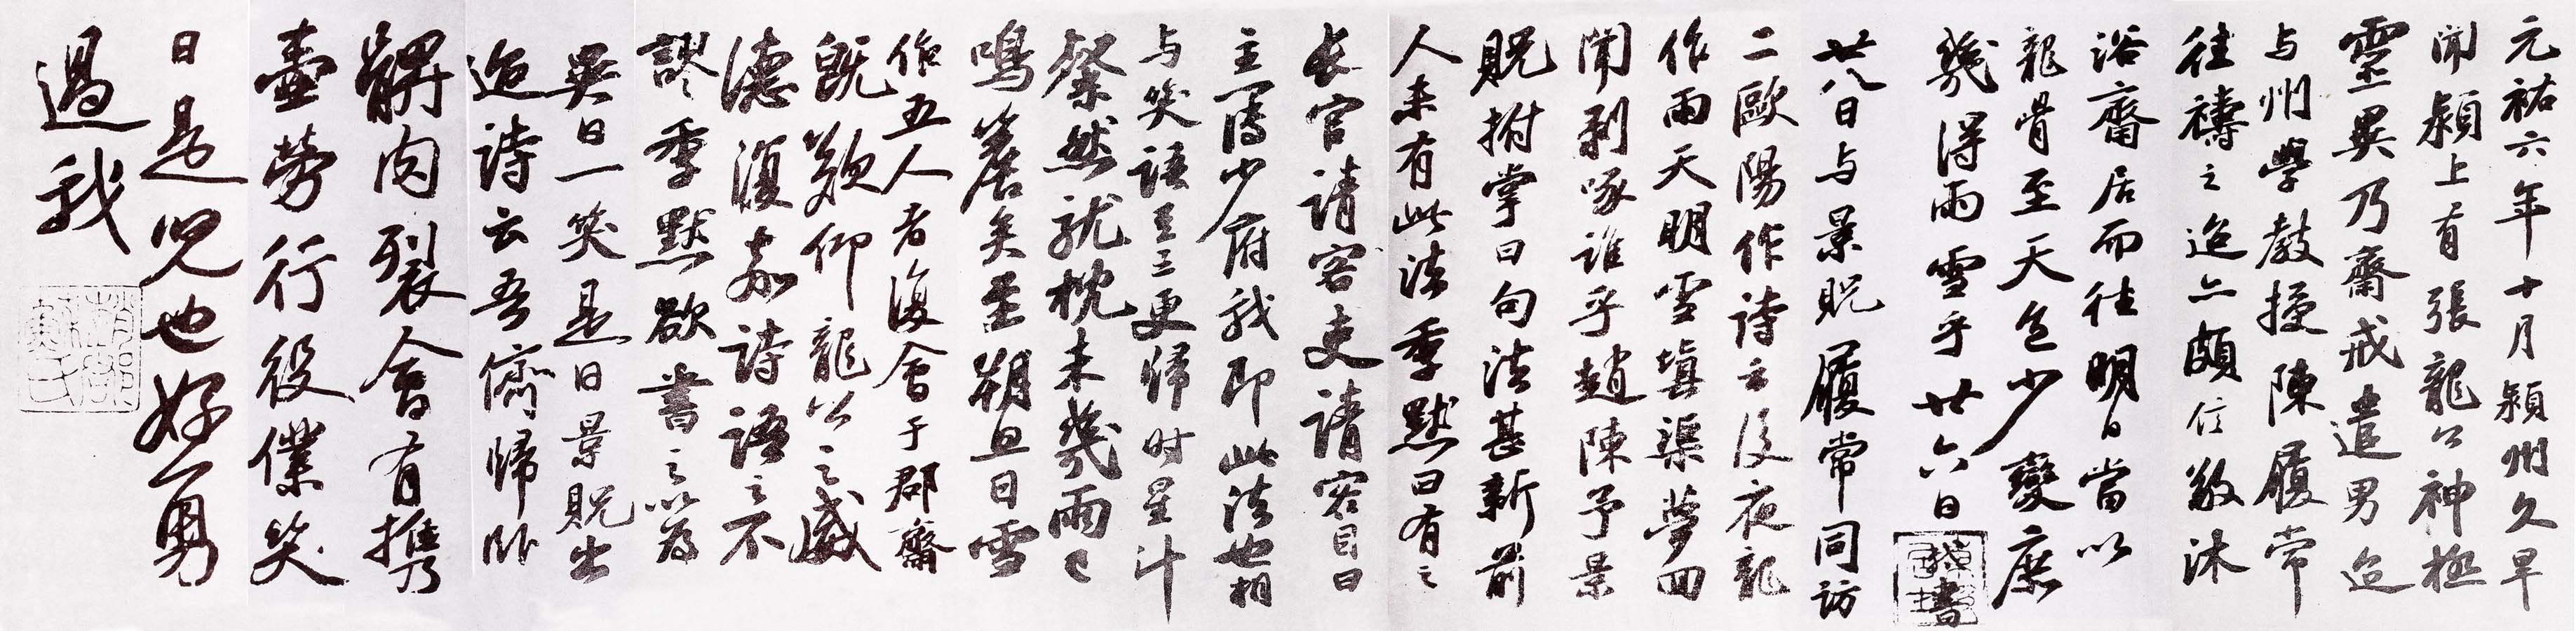 元祐六年十月潁州久旱
聞潁上有張龍公神極
靈異乃齋戒遣男迨
与州學教授陳履常
往禱之迨亦頗信敬沐
浴齋居而往明日當以
龍骨至天色少變庶
幾得雨雪乎廿六日軾書
廿八日与景貺履常同訪
二歐陽作詩云後夜龍
作雨天明雪填渠夢回
聞剥啄誰乎趙陳予景
貺拊掌曰句法甚新前
人未有此法季默曰有之
長官請客吏請客目曰
主簿少府我即此法也相
与笑語至三更歸時星斗
粲然就枕未幾雨已
鳴簷矣至朔旦日雪
作五人者復會于郡齋
既歎仰龍公之威
德復嘉詩語之不
謬季默欲書之以為
異日一笑是日景貺出
迨詩云吾儕歸卧
髀肉裂會有攜
壺勞行役僕笑
曰是兒也好勇
過我